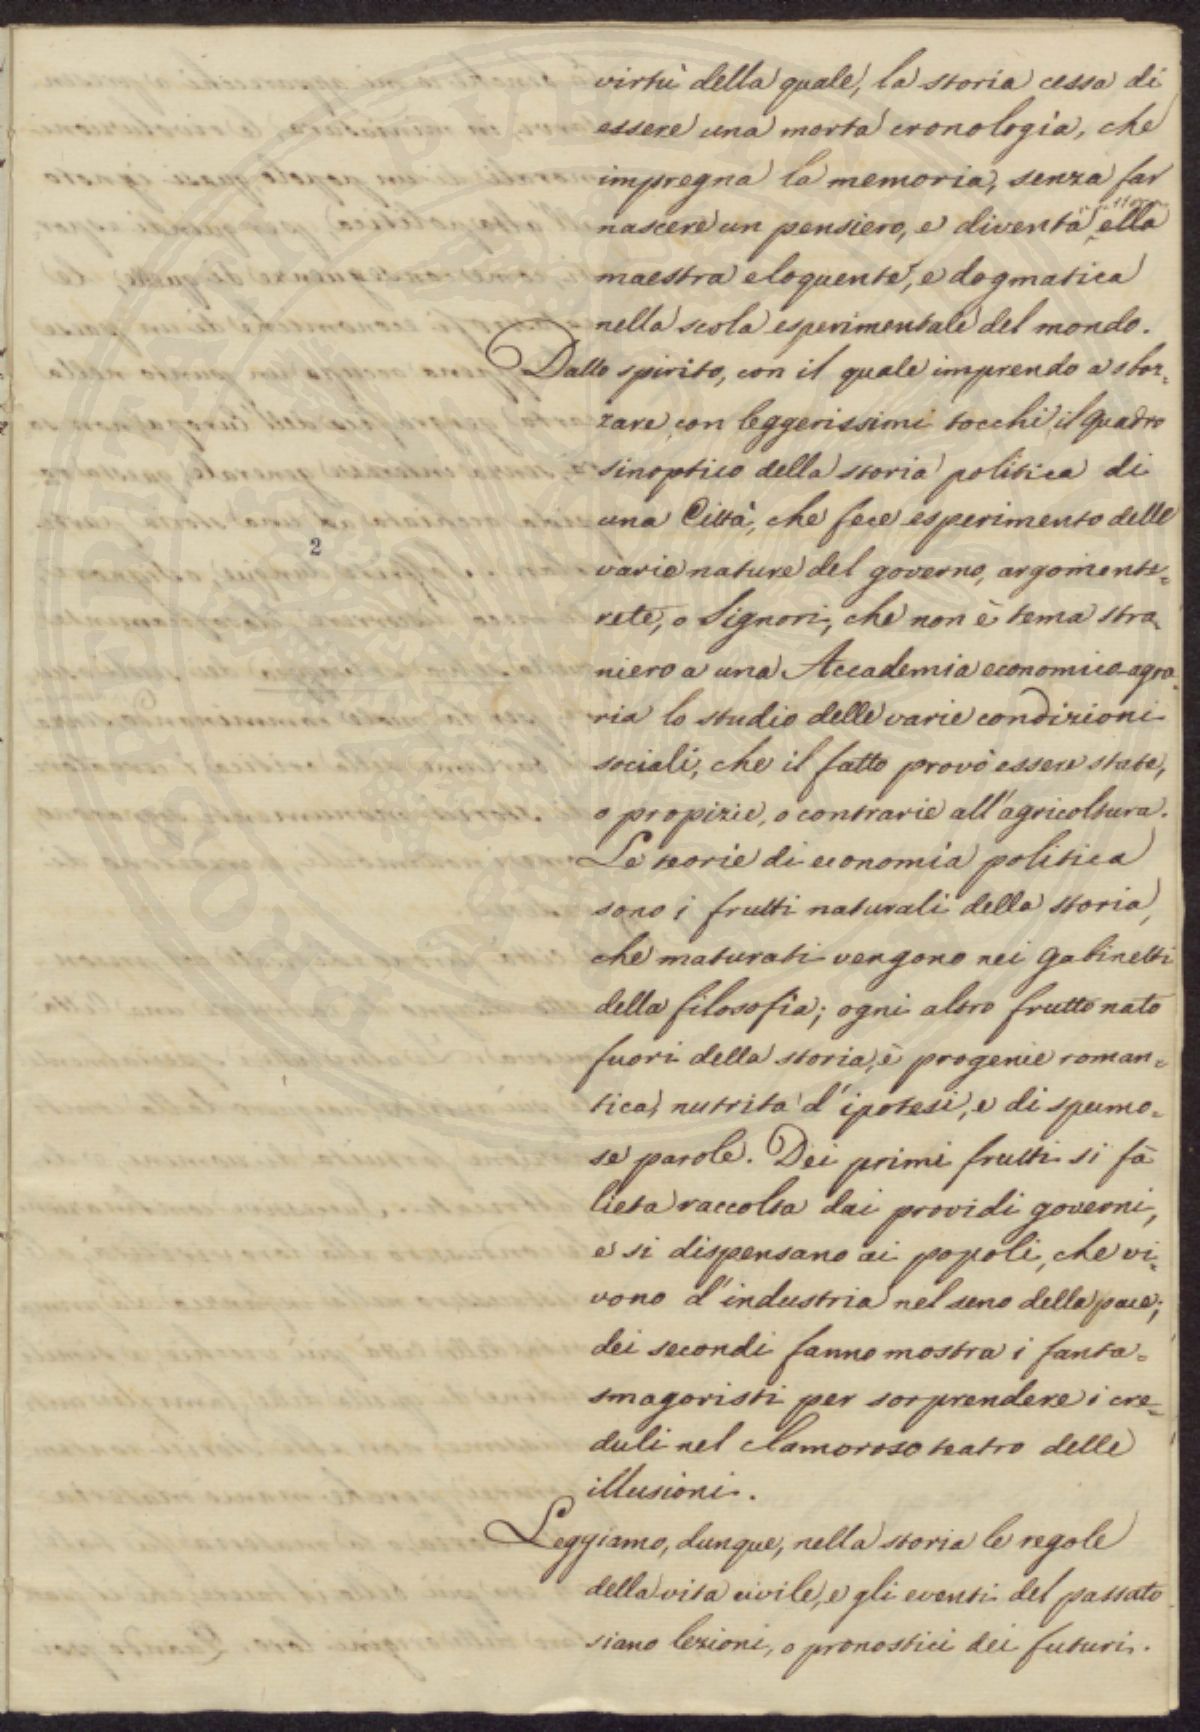 virtù della quale, la storia cessa di
essere una morta cronologia, che
impregna la memoria, senza far
nascere un pensiero, e diventa ella
maestra eloquente, e dogmatica
nella scola esperimentale del mondo.
Dallo spirito, con il quale imprendo a sboz=
zare con leggerissimi tocchi il quadro
sinoptico della storia politica di
una Città, che fece esperimento delle
varie nature del governo, argomente=
rete, o Signori, che non è tema stra=
niero a una Accademia economico-agra=
ria lo studio delle varie condizioni
sociali, che il fatto provò essere state,
o propizie, o contrarie all'agricoltura.
Le teorie di economia politica
sono i frutti naturali della storia,
che maturati vengono nei gabinetti
della filosofia; ogni altro frutto nato
fuori della storia, è progenie roman=
tica, nutrita d'ipotesi, e di spumo=
se parole. Dei primi frutti si fà
lieta raccolta dai providi governi,
e si dispensano ai popoli, che vi=
vono d'industria nel seno della pace;
dei secondi fanno mostra i fanta=
smagoristi per sorprendere i cre=
duli nel clamoroso teatro delle
illusioni.
Leggiamo, dunque, nella storia le regole
della vita civile, e gli eventi del passato
siano lezioni, o pronostici dei futuri.
2